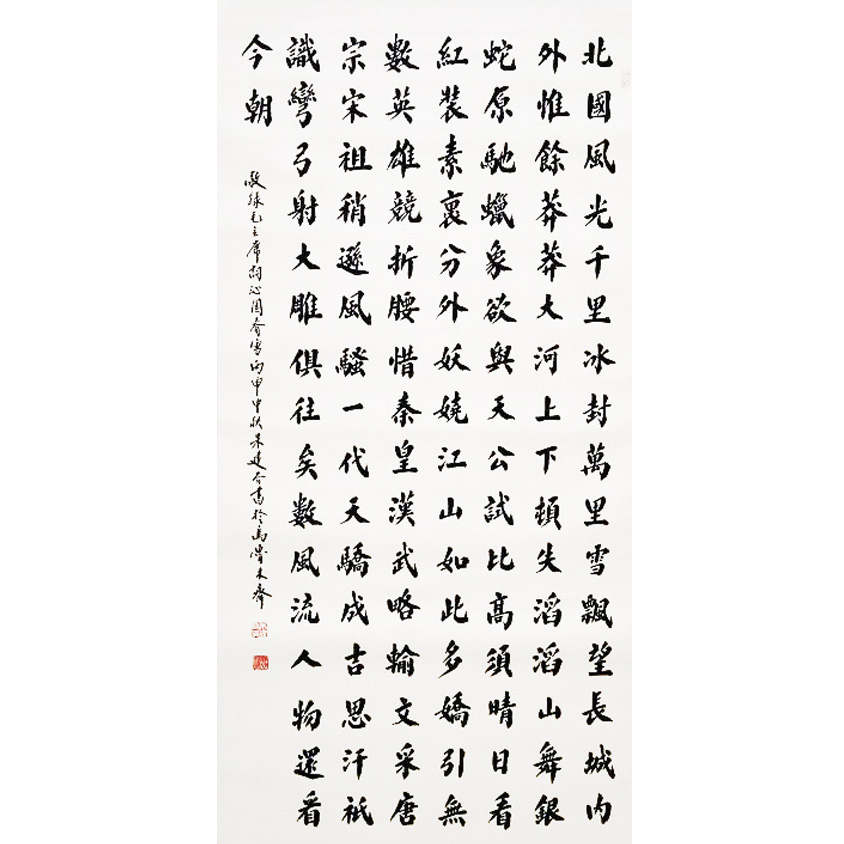 北國風光千里冰封萬里雪飄望長城内
外惟餘莽莽大河上下頓失滔滔山舞銀
蛇原馳蠟象欲與天公試比高須晴日看
紅裝素裹分外妖嬈江山如此多嬌引無
數英雄競折腰惜秦皇漢武略輸文采唐
宗宋祖稍遜風騷一代天驕成吉思汗祇
識彎弓射大雕俱往矣數風流人物還看
今朝
敬錄毛主席詞沁園春雪丙申中秋朱建書於齋